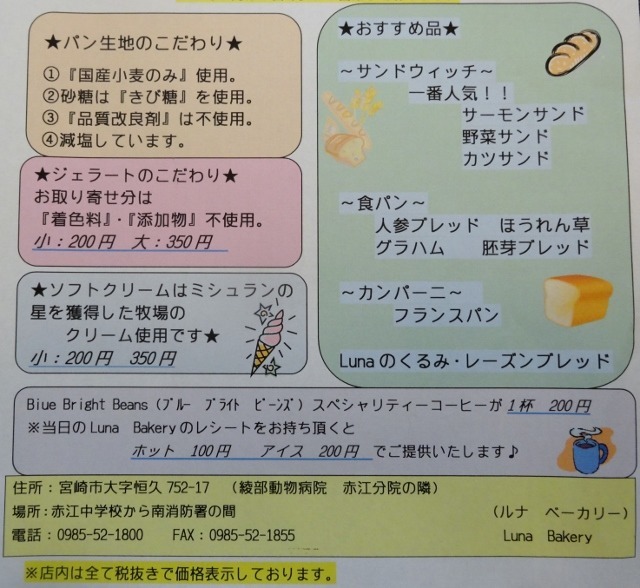 ★パン生地のこだわり★
①『国産小麦のみ』使用。
②砂糖は『きび糖』を使用。
③『品質改良剤』は不使用。
④減塩しています。
★ジェラートのこだわり★
お取り寄せ分は
『着色料』・『添加物』不使用。
小：200円　大：350円
★ソフトクリームはミシュランの
星を獲得した牧場の
クリーム使用です★
小：200円　350円
★おすすめ品★
～サンドウィッチ～
一番人気！！
サーモンサンド
野菜サンド
カツサンド
～食パン～
人参ブレッド　ほうれん草
グラハム　胚芽ブレッド
～カンパーニ～
フランスパン
Lunaのくるみ・レーズンブレッド
Biue Bright Beans（ﾌﾞﾙｰ　ﾌﾞﾗｲﾄ　ﾋﾞｰﾝｽﾞ）スペシャリティーコーヒーが1杯　200円
※当日のLuna　Bakeryのレシートをお持ち頂くと
ホット　100円　　アイス　200円　でご提供いたします♪
住所：宮崎市大字恒久752-17　（綾部動物病院　赤江分院の隣）
場所：赤江中学校から南消防署の間　（ルナ　ベーカリー）
電話：0985-52-1800　　FAX：0985-52-1855　Luna　Bakery
※店内は全て税抜きで価格表示しております。